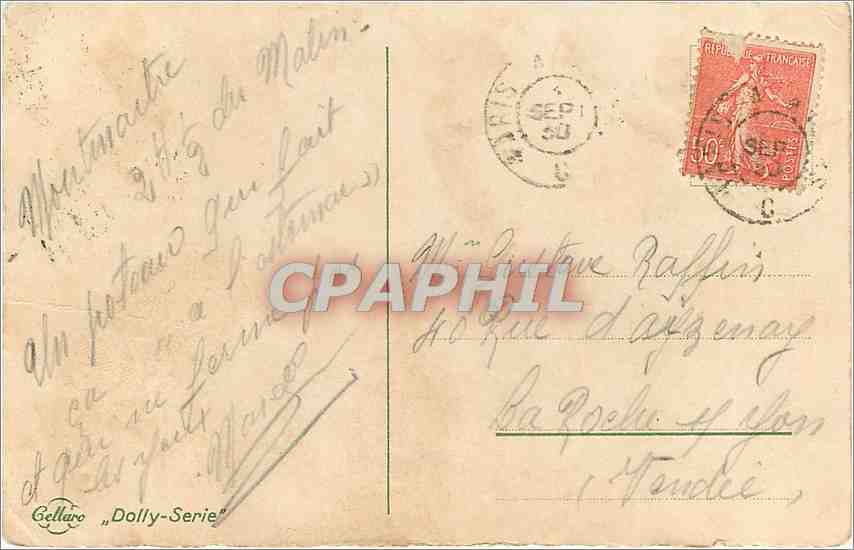 Montmartre
2 H ½ du Matin
Un poteau qui fait
ça " à l'estomac "
et qui ne ferme pas
les yeux
Marcel
Cellaro „Dolly-Serie"
PARIS
SEP
30
C
RÉPUBLIQUE FRANÇAISE
50c
POSTES
SEP
30
C
CPAPHIL
Mr Gustave Raffin
40 Rue d'Aizenay
La Roche s/ Yon
(Vendée)